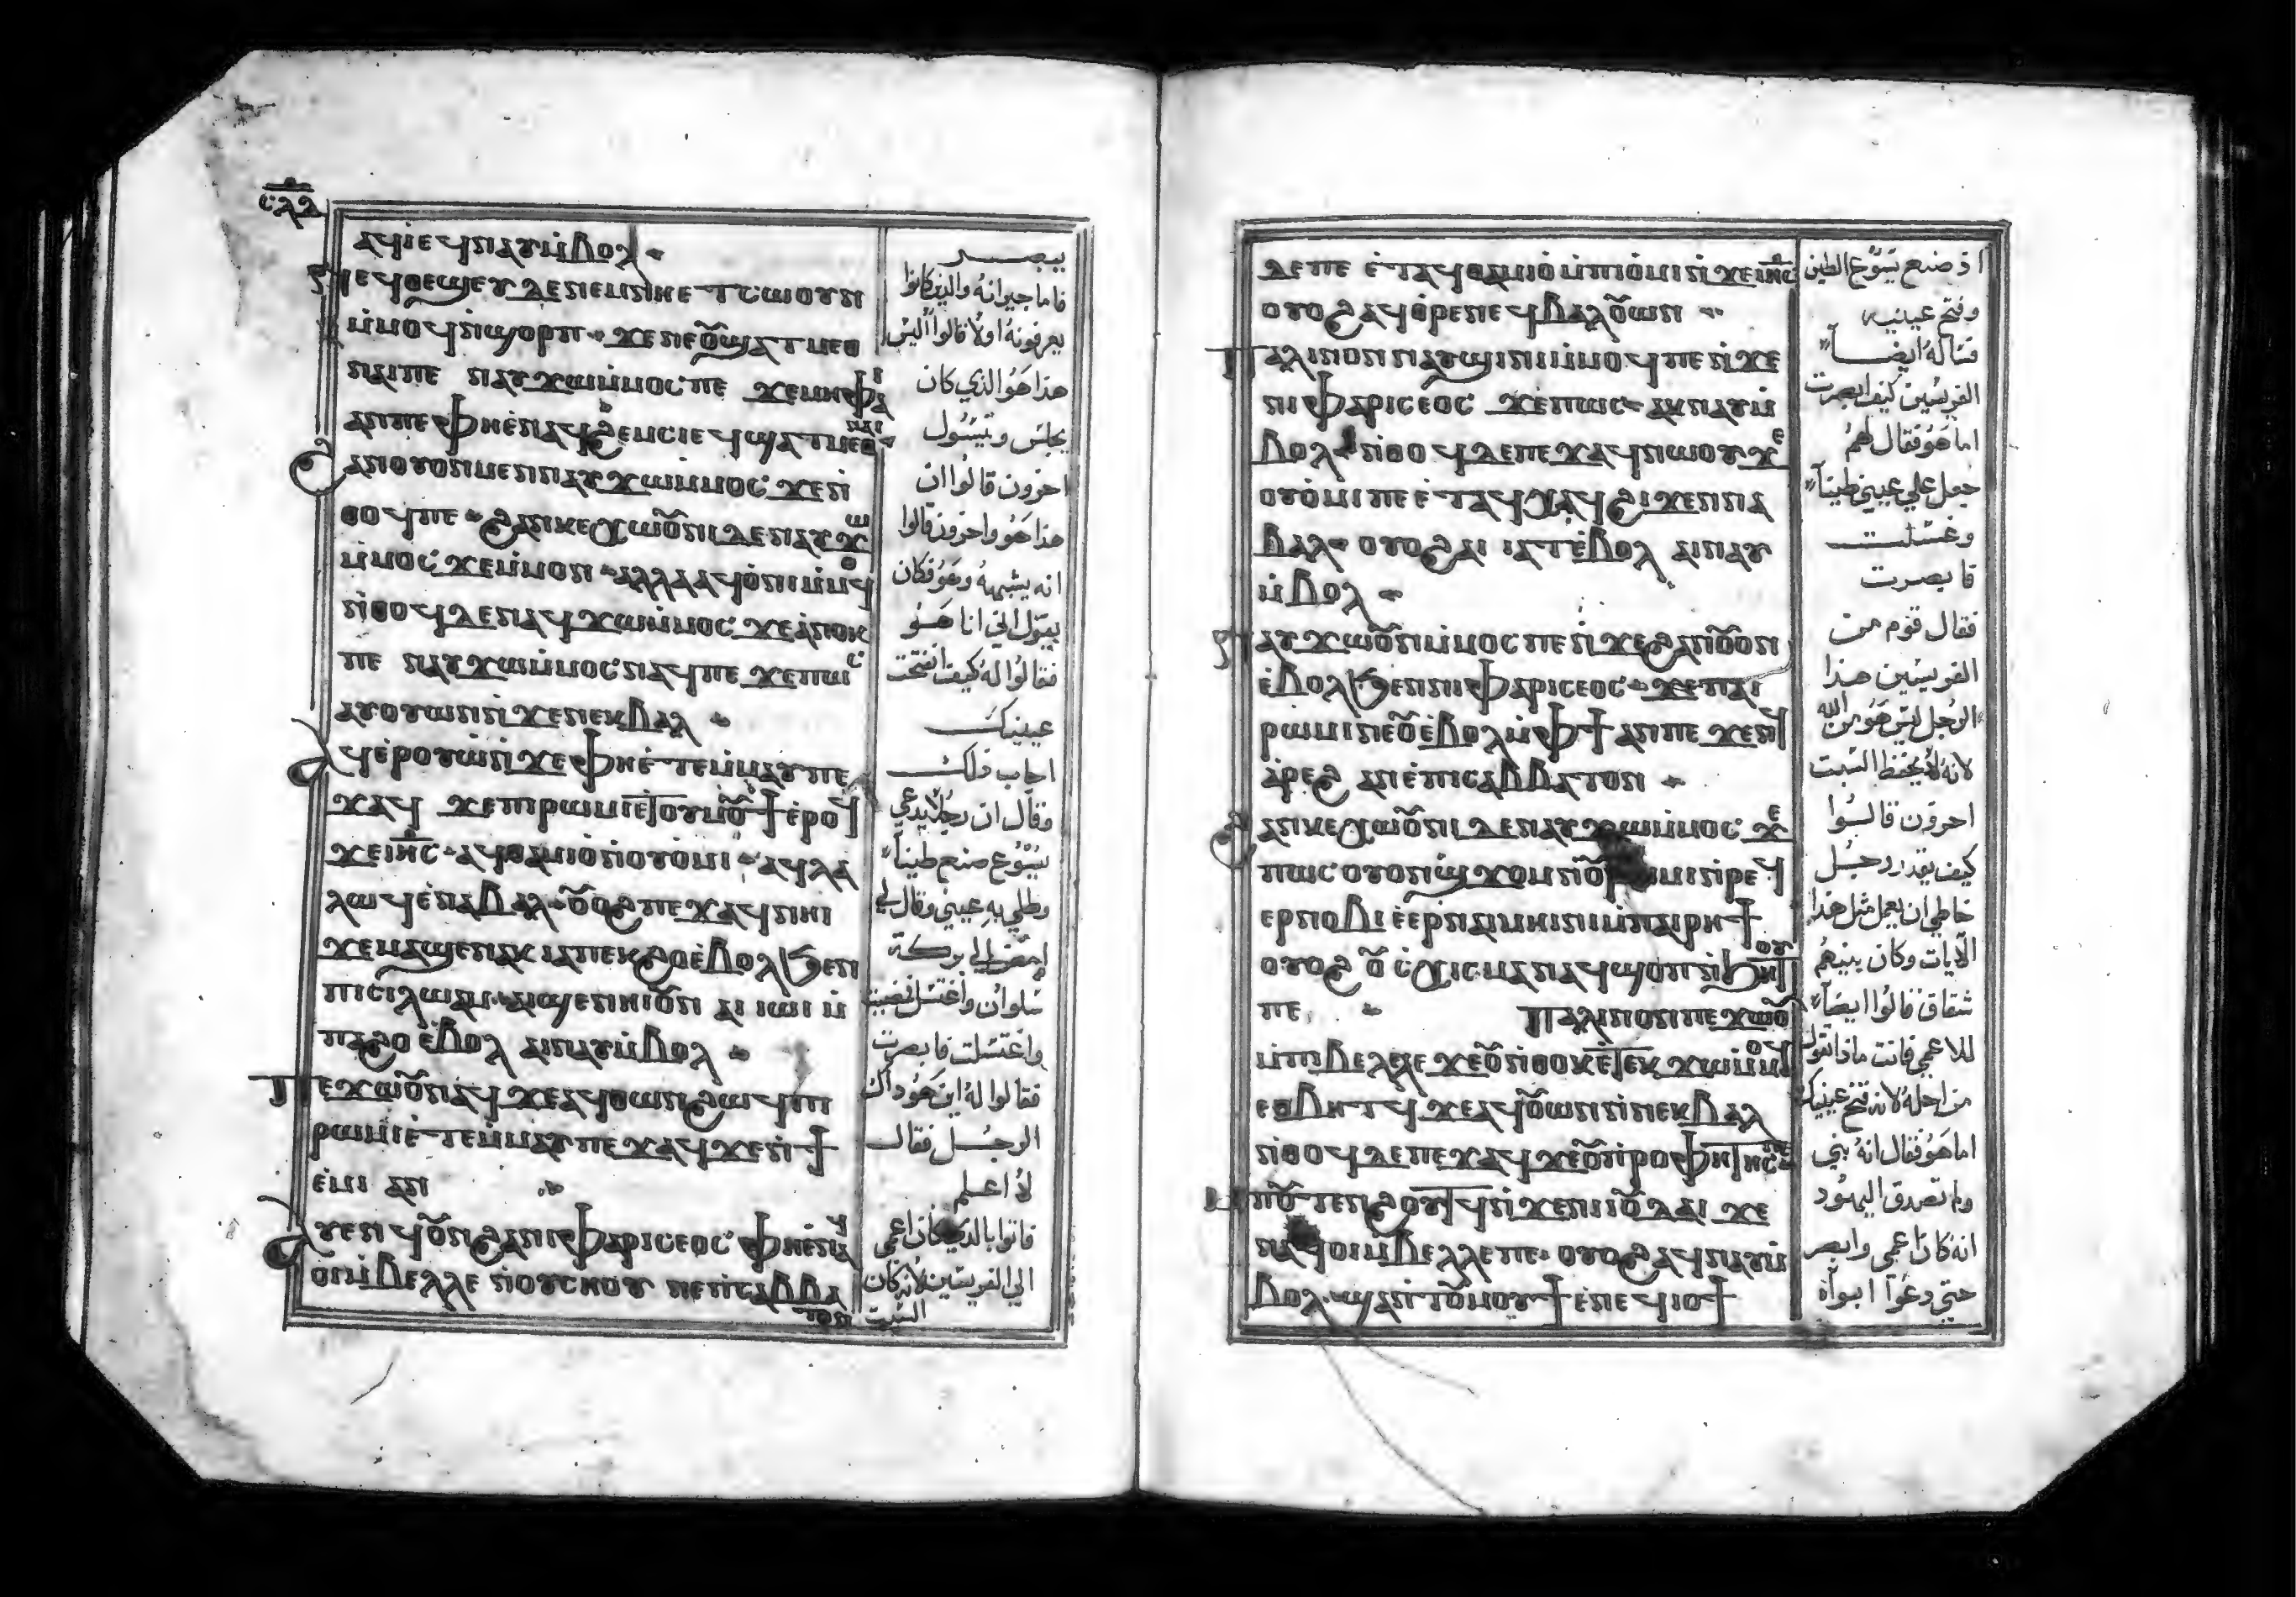 ⲥⲗⲁ
ⲁϥⲓ ⲉϥⲛⲁⲩ ⲙ̀ⲃⲟⲗ
ⲛⲉϥⲑⲉϣⲉⲩ ⲇⲉ ⲛⲉⲙ ⲛⲏ ⲕⲉ ⲧⲥⲱⲟⲩⲛ
ⲙ̀ⲙⲟϥ ⲛ̀ϣⲟⲣⲡ ϫⲉ ⲛⲉⲟ̅ϣⲁⲧⲙⲉⲑ
ⲛⲁⲓ ⲡⲉ ⲛⲁⲩϫⲱⲙ̀ⲙⲟⲥ ⲡⲉ ϫⲉ ⲙⲏ ⲫⲁⲓ
ⲁⲛ ⲡⲉ ⲫⲏ ⲉ̀ⲛⲁϥϩⲉⲙⲥⲓ ⲉϥϣⲁⲧⲙⲉⲑⲛⲁⲓ
ϩⲁⲛⲟⲩⲟⲛ ⲙⲉⲛ ⲛⲁⲩϫⲱⲙ̀ⲙⲟⲥ ϫⲉ ⲛ̀
ⲑⲟϥ ⲡⲉ ϩⲁⲛⲕⲉⲭⲱⲟ̅ⲛⲓ ⲇⲉ ⲛⲁⲩϫⲱ
ⲙ̀ⲙⲟⲥ ϫⲉ ⲙ̀ⲙⲟⲛ ⲁⲗⲗⲁ ⲁϥⲟ̀ⲛⲓ ⲙ̀ⲙⲟϥ
ⲛ̀ⲑⲟϥ ⲇⲉ ⲛⲁϥϫⲱⲙ̀ⲙⲟⲥ ϫⲉ ⲁ̀ⲛⲟⲕ
ⲡⲉ ⲛⲁⲩϫⲱⲙ̀ⲙⲟⲥ ⲛⲁϥ ⲡⲉ ϫⲉ ⲡⲱⲥ
ⲁⲩⲟⲩⲱⲛ ⲛ̀ϫⲉ ⲛⲉⲕⲃⲁⲗ
ⲁϥⲉ̀ⲣⲟⲩⲱ̀ ⲛ̀ϫⲉ ⲫⲏ ⲉ̀ⲧⲉⲙ̀ⲙⲁⲩ ⲡⲉ
ϫⲁϥ ϫⲉ ⲡⲓⲣⲱⲙⲓ ⲉ̀ⲧⲟⲩⲙⲟ̅ϯ ⲉ̀ⲣⲟϥ
ϫⲉ ⲓⲏ̅ⲥ ⲁϥⲑⲁⲙⲓⲟ̀ ⲛ̀ⲟⲩⲟ̀ⲙⲓ ⲁϥⲗⲁ
ⲗⲱϥ ⲉ̀ⲛⲁⲃⲁⲗ ⲟ̅ⲟϩ ⲡⲉϫⲁϥ ⲛⲏⲓ
ϫⲉ ⲙⲁϣⲉⲛⲁⲕ ⲓⲁ ⲡⲉⲕϩⲟ ⲉ̀ⲃⲟⲗ ϧⲉⲛ
ⲡⲓⲥⲓⲗⲱⲁⲙ ⲁⲓϣⲉⲛⲏⲓ ⲟ̅ⲛ ⲁⲓ ⲓⲱⲓ ⲙ̀
ⲡⲁϩⲟ ⲉ̀ⲃⲟⲗ ⲁⲓⲛⲁⲩ ⲙ̀ⲃⲟⲗ
ⲡⲉϫⲱⲟ̅ ⲛⲁϥ ϫⲉ ⲁϥⲑⲱⲛ ϩⲱϥ ⲡⲓ
ⲣⲱⲙⲓ ⲉ̀ⲧⲉⲙ̀ⲙⲁⲩ ⲡⲉϫⲁϥ ϫⲉ ⲛ̀ϯ
ⲉ̀ⲙⲓ ⲁⲛ
ⲁⲩⲉⲛϥ ⲟ̅ⲛ ϩⲁ ⲛⲓⲫⲁⲣⲓⲥⲉⲟⲥ ⲫⲏ ⲉ̀ⲛⲁϥ
ⲟⲓ ⲙ̀ⲃⲉⲗⲗⲉ ⲛ̀ⲟⲩⲥⲏⲟⲩ ⲛⲉ ⲡ̀ⲥⲁⲃⲃⲁ
ⲧⲟⲛ
يبصر
فاما جيرانهُ والذين كانوا
يعرفونهُ اولاً قالوا اليس
هذا هَوُ الذي كان
يجلس ويتسُول
اخرون قالُوا ان
هذا هَوُ واخرون قالوا
انه يشبههُ وهَوُ فكان
يقول اني انا هَوُ
فقالُوا لهُ كيف انفتحت
عينيك
اجاب ذلك
وقال ان رجُلاً يدعي
يَسُوع صنع طيناً
وطلي به عيني وقال لي
امضِ الي بركة
سَلوان واغتسَل فمضيت
واغتسَلت فابصرت
فقالوا لهُ اين هَوُ داك
الرجُل فقال
لاُ اعلم
فاتوا بالذي كان اعمي
الي الفريسَين لاُنه كان
السَبت
ⲇⲉ ⲡⲉ ⲉ̀ⲧⲁϥⲑⲁⲙⲓⲟ̀ ⲙ̀ⲡⲓⲟ̀ⲙⲓ ⲛ̀ϫⲉ ⲓⲏ̅ⲥ
ⲟⲩⲟϩ ⲁϥⲑ̀ⲣⲉ ⲛⲉϥⲃⲁⲗ ⲟ̅ⲱⲛ
ⲡⲁⲗⲓⲛ ⲟⲛ ⲛⲁⲩϣⲓⲛⲓ ⲙ̀ⲙⲟϥ ⲡⲉ ⲛ̀ϫⲉ
ⲛⲓⲫⲁⲣⲓⲥⲉⲟⲥ ϫⲉ ⲡⲱⲥ ⲁⲕⲛⲁⲩ ⲙ̀
ⲃⲟⲗ ⲛ̀ⲑⲟϥ ⲇⲉ ⲡⲉϫⲁϥ ⲛⲱⲟⲩ ϫⲉ
ⲟⲩⲟ̀ⲙⲓ ⲡⲉ ⲉ̀ⲧⲁϥⲭⲁϥ ϩⲓϫⲉⲛ ⲛⲁ
ⲃⲁⲗ ⲟⲩⲟϩ ⲁⲓ ⲓⲁⲧ ⲉ̀ⲃⲟⲗ ⲁⲓⲛⲁⲩ
ⲙ̀ⲃⲟⲗ
ⲛⲁⲩϫⲱⲟ̅ⲛ ⲙ̀ⲙⲟⲥ ⲡⲉ ⲛ̀ϫⲉ ϩⲁⲛⲟ̅ⲟⲛ
ⲉ̀ⲃⲟⲗ ϧⲉⲛ ⲛⲓⲫⲁⲣⲓⲥⲉⲟⲥ ϫⲉ ⲡⲁⲓ
ⲣⲱⲙⲓ ⲛⲉ ⲟ̅ⲉ̀ⲃⲟⲗ ⲙ̀ⲫϯ ⲁⲛ ⲡⲉ ϫⲉ ⲛϥ
ⲁ̀ⲣⲉϩ ⲁⲛ ⲉ̀ⲡⲓⲥⲁⲃⲃⲁⲧⲟⲛ
ϩⲁⲛⲕⲉⲭⲱⲟ̅ⲛⲓ ⲇⲉ ⲛⲁⲩϫⲱⲙ̀ⲙⲟⲥ ϫⲉ
ⲡⲱⲥ ⲟⲩⲟⲛ ϣ̀ϫⲟⲙ ⲛ̀ⲟ̅ⲣⲱⲙⲓ ⲛ̀ⲣⲉϥ
ⲉⲣⲛⲟⲃⲓ ⲉ̀ⲉⲣ ⲛⲁⲓⲙⲏⲓⲛⲓ ⲙ̀ⲡⲁⲓⲣⲏϯ
ⲟⲩⲟϩ ⲟ̅ⲥ̀ⲭⲓⲥⲙⲁ ⲛⲁϥϣⲟⲡ ⲛ̀ϧⲏⲧⲟⲩ
ⲡⲉ ⲡⲁⲗⲓⲛ ⲟⲛ ⲡⲉϫⲱⲟ̅
ⲙ̀ⲡⲓⲃⲉⲗⲗⲉ ϫⲉ ⲟ̅ ⲛ̀ⲑⲟⲕ ⲉ̀ⲧⲉⲕϫⲱⲙ̀ⲙⲟϥ
ⲉⲑⲃⲏⲧϥ ϫⲉ ⲁϥⲟ̅ⲱⲛ ⲛ̀ⲛⲉⲕⲃⲁⲗ
ⲛ̀ⲑⲟϥ ⲇⲉ ⲡⲉϫⲁϥ ϫⲉ ⲟ̅ⲡ̀ⲣⲟⲫⲏⲧⲏⲥ ⲡⲉ
ⲙ̀ⲡⲟ̅ⲧⲉⲛϩⲟⲩⲧϥ ⲛ̀ϫⲉ ⲛⲓⲓⲟ̅ⲇⲁⲓ ϫⲉ
ⲛⲁϥⲟⲓ ⲙ̀ⲃⲉⲗⲗⲉ ⲡⲉ ⲟⲩⲟϩ ⲁϥⲛⲁⲩ ⲙ̀
ⲃⲟⲗ ϣⲁⲛⲧⲟ̅ⲙⲟⲩϯ ⲉ̀ⲛⲉϥⲓⲟϯ
اذ صنع يَسُوع الطين
وفتح عينيه
فسَالهُ ايضاً
الفريسَين كيف ابصرت
اما هَوُ فقال لهمُ
جعل علي عيني طيناً
وغسَلت
فابصرت
فقال قوم من
الفريسَين هذا
الرجُل ليسَ هَوُ من الله
لانهُ لاُ يحفظ السَبت
اخرون قالسُوا
كيف يقدر رجُل
خاطي ان يعمل مثل هذا
الاَيات وكان بينهمُ
شقاق فقالُوا ايضاً
للاعمي فانت ماذا تقول
من اجلهُ لانه فتح عينيك
اما هَوُ فقال انهُ نبي
ولم تصدق اليهُود
انهُ كان اعمي وابصر
حتي دعُوا ابواه